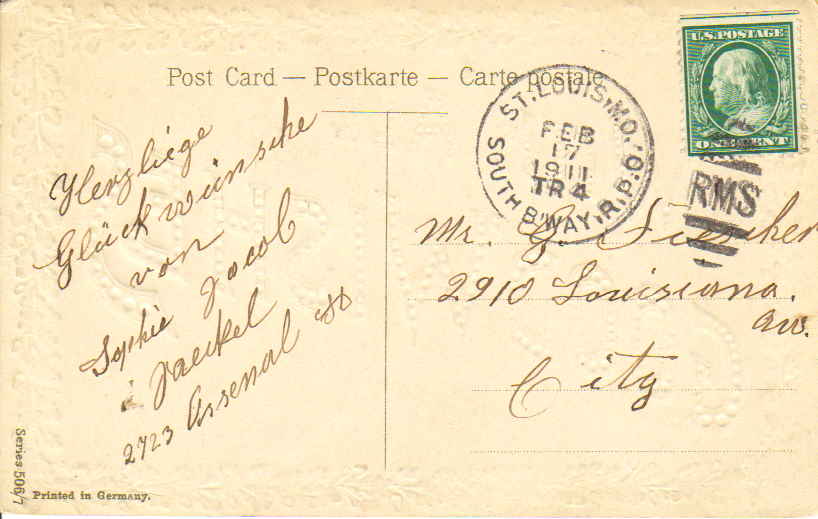 Post Card — Postkarte — Carte postale
U.S. POSTAGE
ONE CENT
ST. LOUIS, MO.
FEB
17
1911
TR 4
SOUTH B'WAY, R.P.O.
RMS
Herzliege
Glückwünsche
von
Sophie Jacob
Jaeckel
2723 Arsenal St
Mr. G.
2910 Louisiana.
av.
City
Series 506/7
Printed in Germany.